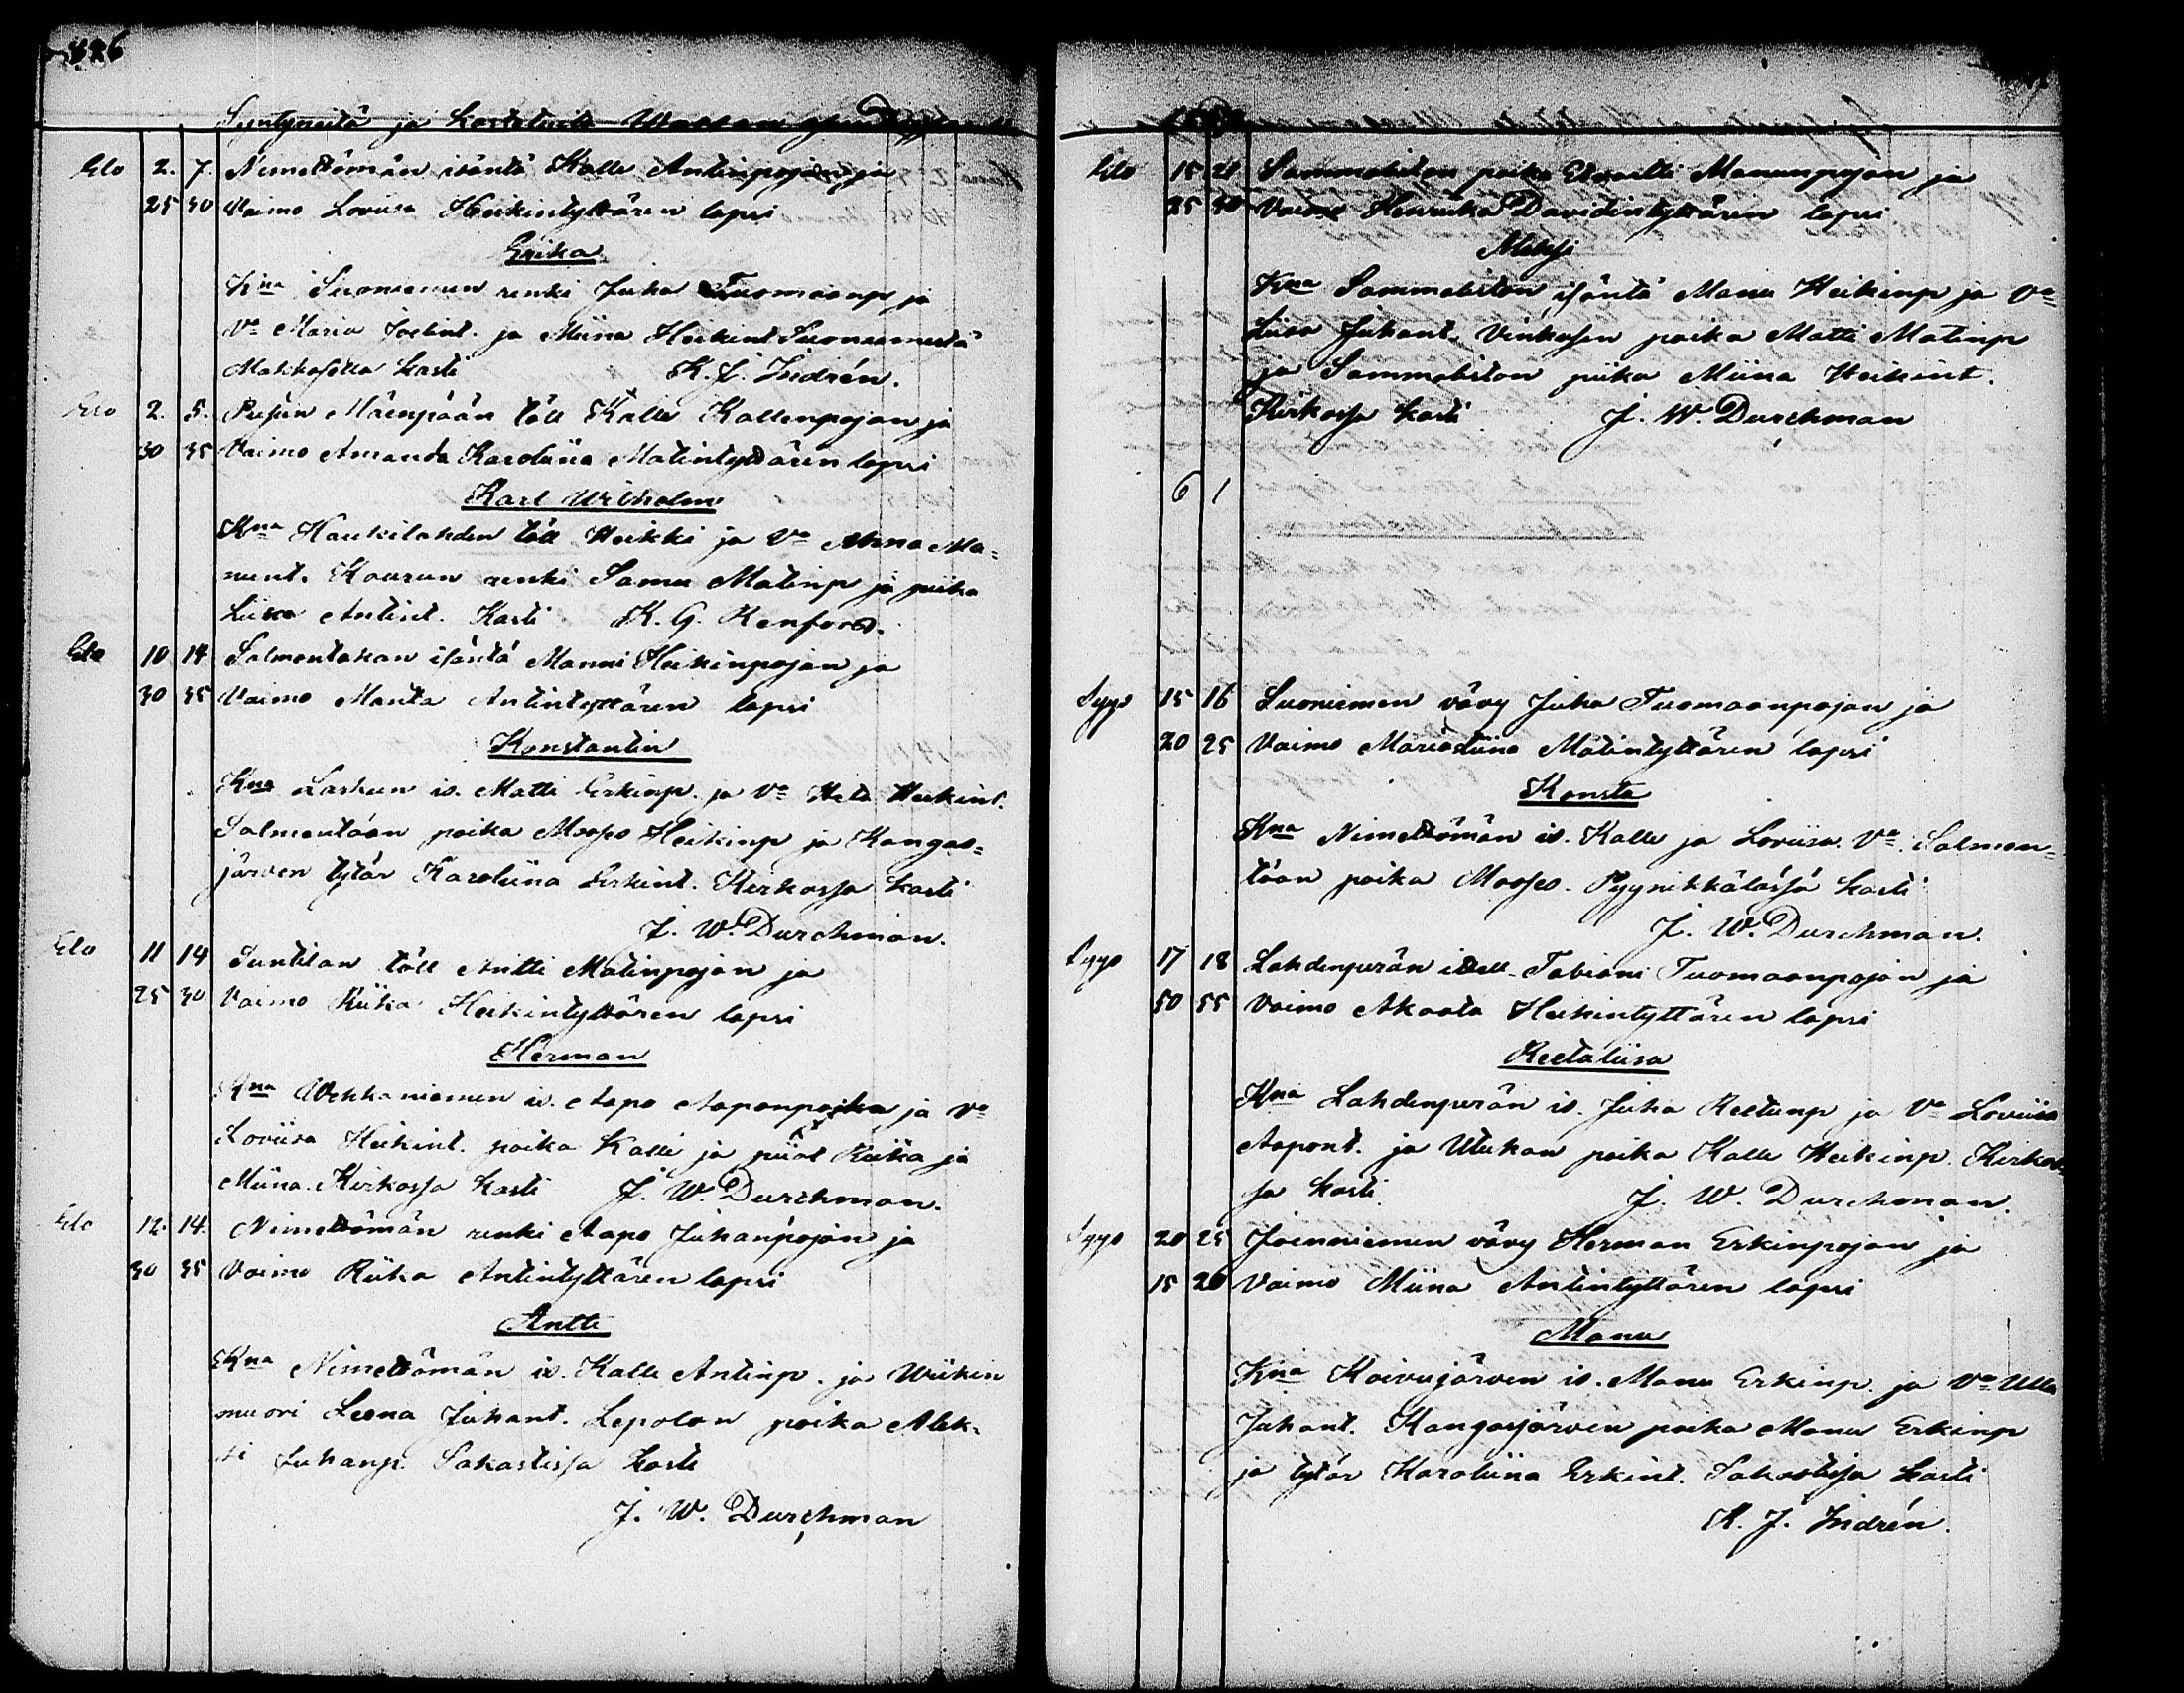 Syntyneitä ja kastetuita
Elo 2. 7. Nimettömän isäntä Kalle Antinpojan ja
25 30 Vaimo Loviisa Heikintyttären lapsi
Erika
Kna Suoniemen renki Juha Tuomaanp ja
Va Maria Joelint. ja Miina Heikint Suoniemestä
kasti K. J. Indrén.
Elo 2. 5. Mäenpään töll Kalle Kallenpojan ja
30 35 Vaimo Amanda Karoliina Matintyttären lapsi
Karl Wilhelm
Kna Haukilahden töll Heikki ja Va Miina Ma=
nunt. Kaurun renki Samu Matinp ja piika
Liisa Antint. Kasti K. G. Renfors.
Elo 10 14 Salmentakan isäntä Manni Heikinpojan ja
30 35 Vaimo Manta Antintyttären lapsi
Konstantin
Kna Laskun is. Matti Erkinp. ja Va Heta Heikint.
Salmentaan poika Moses Heikinp ja Kangas=
järven tytär Karoliina Erkint. Kirkossa kasti
J. W. Durchman.
Elo 11 14 Suntilan töll Antti Matinpojan ja
25 30 Vaimo Riika Heikintyttären lapsi
Herman
Kna Wehkaniemen is. Aapo Aaponpoika ja Va
Loviisa Heikint. poika Kalle ja piiat Riika ja
Miina. Kirkossa kasti J. W. Durchman.
Elo 12. 14. Nimettömän renki Aapo Juhanpojan ja
30 35 Vaimo Riika Antintyttären lapsi
Antti
Kna Nimettömän is. Kalle Antinp. ja Wiikin
muori Leena Juhant. Lepolan poika Alek=
si Juhanp. Sakastissa kasti
J. W. Durchman
Elo 15 21 Sammakiston poika Edvartti Manunpojan ja
25 30 Vaimo Henriika Davidintyttären lapsi
Kna Sammakiston isäntä Manu Heikinp ja Va
Liisa Juhant. Vinkosen poika Matti Matinp
ja Sammakiston piika Miina Heikint.
Kirkossa kasti J. W. Durchman
6 1
Syys 15 16 Suoniemen vävy Juha Tuomaanpojan ja
20 25 Vaimo Mariastiina Matintyttären lapsi
Konsta
Kna Nimettömän is. Kalle ja Loviisa Va Salmen=
taan poika Moses. Pyynikkälässä kasti
J. W. Durchman.
Syys 17 18 Lahdenperän Tabiani Tuomaanpojan ja
50 55 Vaimo Akaata Heikintyttären lapsi
Reetaliisa
Kna Lahdenperän is. Juha Reetunp ja Va Loviisa
Aapont. ja Utukan poika Kalle Heikinp. Kirkos=
sa kasti J. W. Durchman.
Syys 20 25 Joenniemen vävy Herman Erkinpojan ja
15 20 Vaimo Miina Antintyttären lapsi
Manu
Kna Koivujärven is. Manu Erkinp. ja Va Ulla
Juhant. Kangasjärven poika Manu Erkinp
ja tytär Karoliina Erkint. Sakastissa kasti
K. J. Indrén.